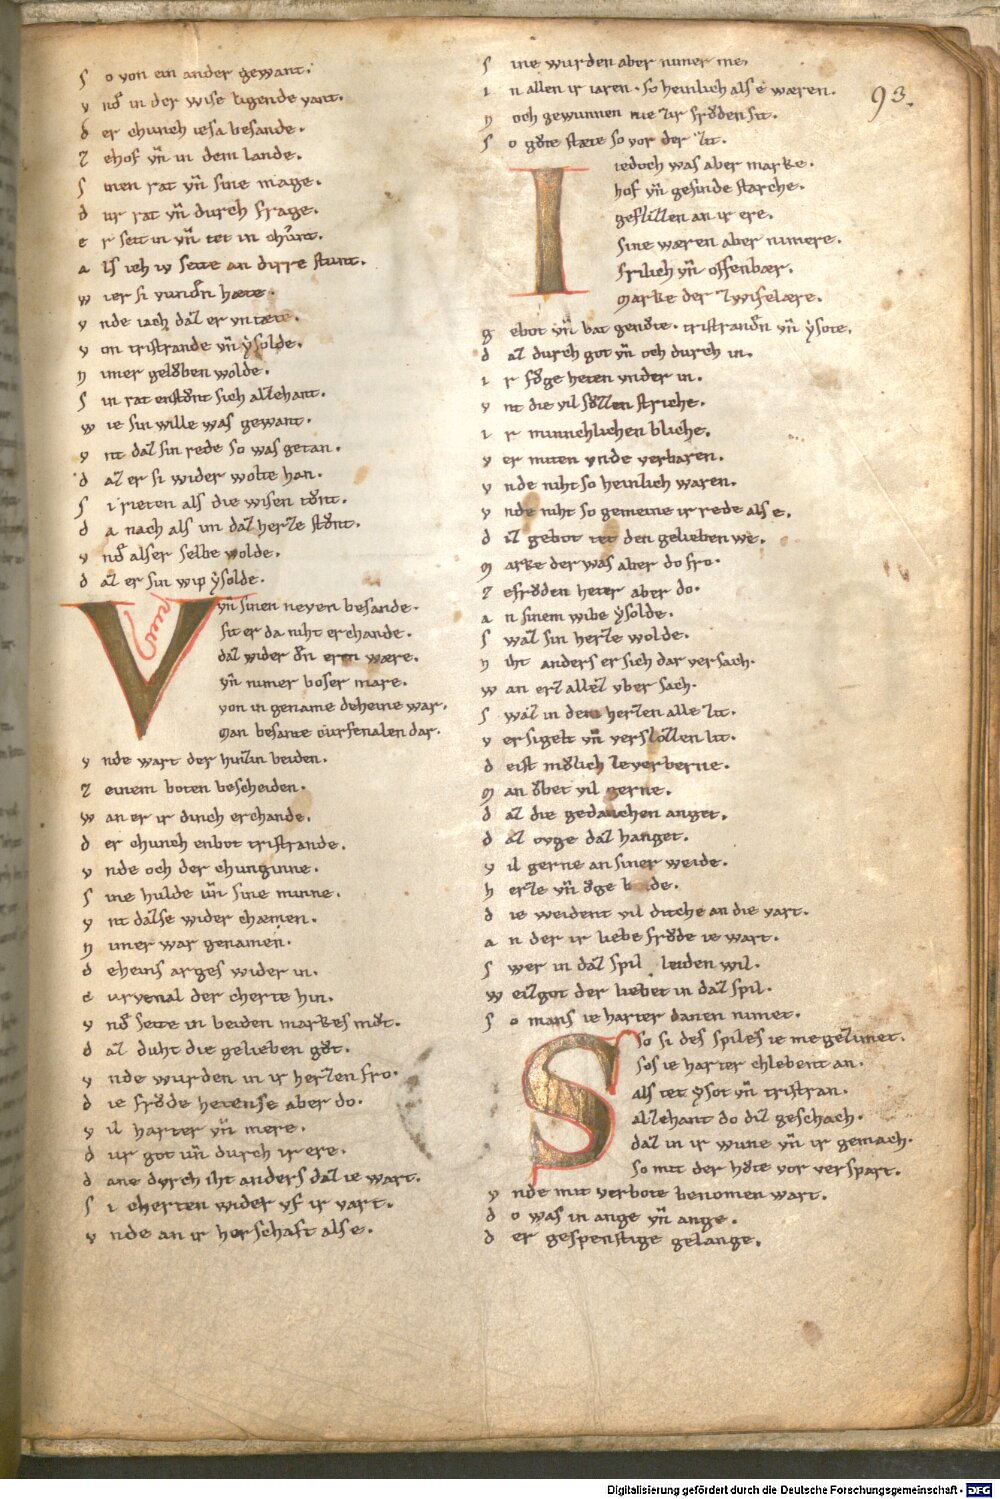 S o von ein ander gewant.
v nd̾ in der wise ligende vant.
d er chunch iesa besande.
z ehof vn̄ in dem lande.
S inen rat vn̄ sine mage.
d ur rat vn̄ durch frage.
e r seit in vn̄ tet in chunt.
a ls ich iv seite an dirre stunt.
w ier si vund̾n hæte.
v nde iach daz er vntæte.
v on tristrande vn̄ ẏsolde.
n imer gelǒben wolde.
S in rat enstǒnt sich allehant.
w ie sin wille was gewant.
v nt daz sin rede so was getan.
d az er si wider wolte han.
S i rieten als die wisen tǒnt.
d a nach als im daz herze stǒnt.
v nd̾ alser selbe wolde.
d az er sin wip ẏsolde.
V vn̄ sinen neven besande.
sit er da niht erchande.
daz wider ǒn eren wære.
vn̄ nimer boser mære.
von in gename deheine war.
Man besante curfenalen dar.
v nde wart der huizin beiden.
z einem boten bescheiden.
w an er ir dinch erchande.
d er chunch enbot tristrande.
v nde och der chunginne.
S ine hulde vn̄ sine minne.
v nt dazse wider chæmen.
n imer war genamen.
d eheins arges wider in.
c urvenal der cherte hin.
v nd̾ seite in beiden markes mǒt.
d az duht die gelieben gǒt.
v nde wurden in ir herzen fro.
d ie frǒde hetense aber do.
v il harter vn̄ mere.
d ur got vn̄ durch ir ere.
d ane dvrch iht anders daz ie wart.
S i cherten wider vf ir vart.
v nde an ir herschaft als e.
93.
S ine wurden aber nimer me.
i n allen ir iaren. so heinlich als e wæren.
n och gewunnen nie zir frǒden sit.
S o gǒte stæte so vor der zit.
I iedoch was aber marke.
hof vn̄ gesinde starche.
geflizzen an ir ere.
sine wæren aber nimere.
frilich vn̄ offenbær.
Marke der zwiselære.
g ebot vn̄ bat genǒte. tristrand̾n vn̄ ẏsote.
d az durch got vn̄ och durch in.
i r fǒge heten vnder in.
v nt die vil sǒzzen striche.
i r minnchlichen bliche.
v er miten vnde verbaren.
v nde niht so heinlich waren.
v nde niht so gemeine ir rede als e.
d iz gebot tet den gelieben we.
M arke der was aber do fro.
z efrǒden heter aber do.
a n sinem wibe ẏsolde.
S waz sin herze wolde.
n iht anders er sich dar versach.
w an erz allez vber sach.
S waz in dem herzen alle zit.
v ersigelt vn̄ verslozzen lit.
d eist mǒlich zeverberne.
M an ǒbet vil gerne.
d az die gedanchen anget.
d az ovge daz hanget.
v il gerne an siner weide.
h erze vn̄ ǒge beide.
d ie weident vil diche an die vart.
a n der ir liebe frǒde ie wart.
S wer in daz spil leiden wil.
w eizgot der liebet in daz spil.
S o mans ie harter danen nimet.
S so si des spiles ie me gezimet.
sos ie harter chlebent an.
als tet ẏsot vn̄ tristran.
allehant do diz geschach.
daz in ir wune vn̄ ir gemach.
so mit der hǒte vor verspart.
v nde mit verbote benomen wart.
d o was in ange vn̄ ange.
d er gespenstige gelange.
Digitalisierung gefördert durch die Deutsche Forschungsgemeinschaft - DFG